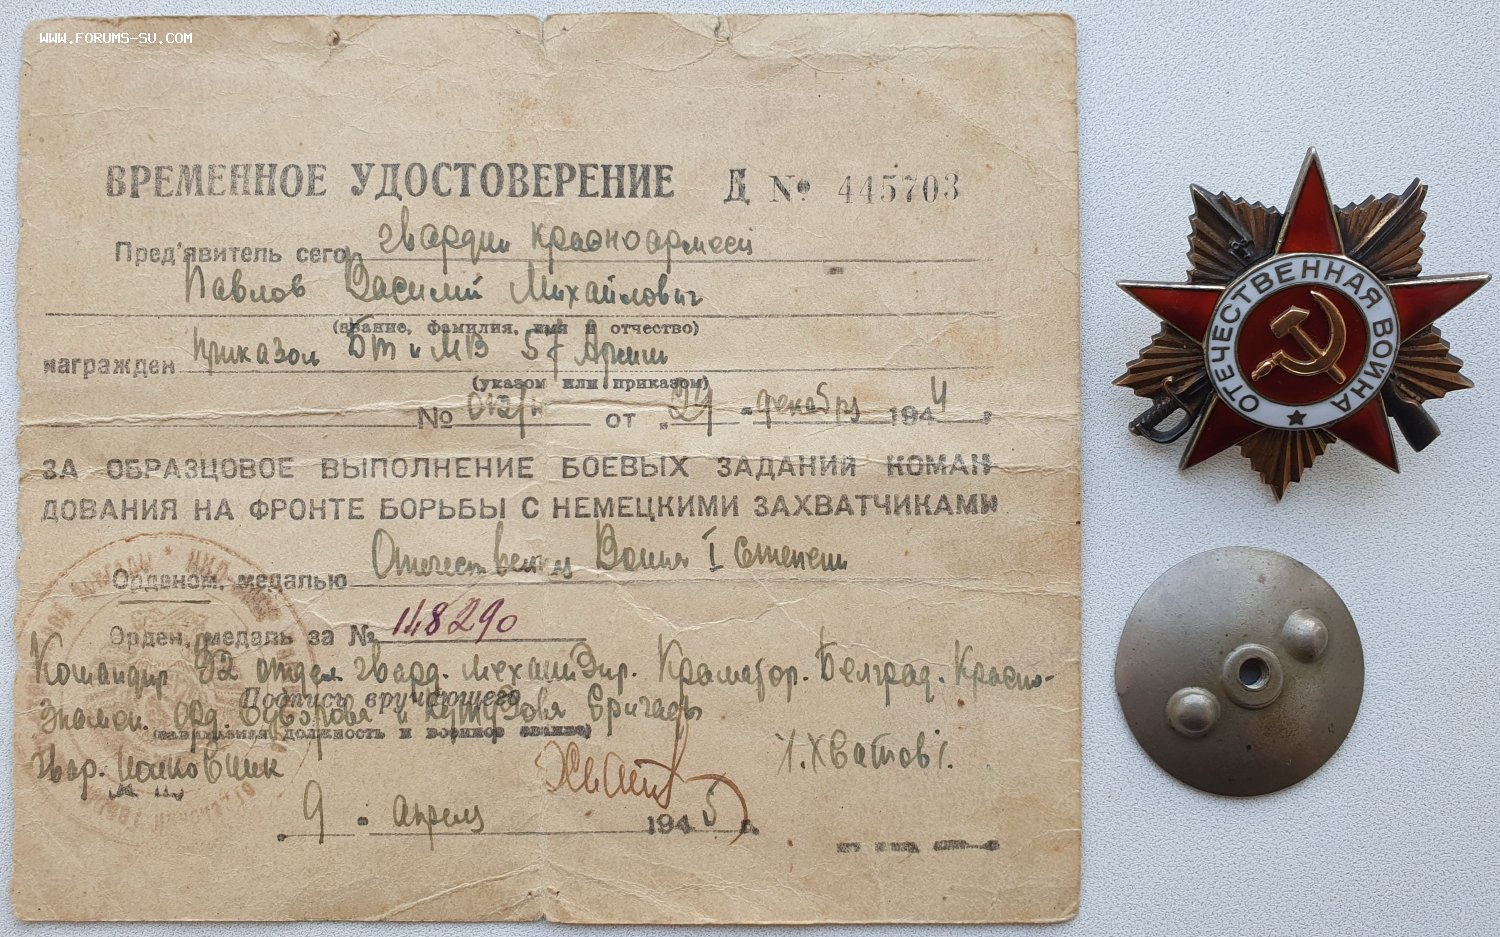 WWW.FORUMS-SU.COM
ВРЕМЕННОЕ УДОСТОВЕРЕНИЕ Д № 445703
Пред'явитель сего гвардии красноармеец
Павлов Василий Михайлович
(звание, фамилия, имя и отчество)
награжден приказом БТ и МВ 57 Армии
(указом или приказом)
№ от „29" декабря 1944 г
ЗА ОБРАЗЦОВОЕ ВЫПОЛНЕНИЕ БОЕВЫХ ЗАДАНИЙ КОМАН
ДОВАНИЯ НА ФРОНТЕ БОРЬБЫ С НЕМЕЦКИМИ ЗАХВАТЧИКАМИ
Орденом, медалью Отечествен Война I степени
Орден, медаль за № 148290
Командир 32 отдел гвард. механизир. Краматор. Белград. Красно-
Подпись вручающего
знамен. Орд. Суворова и Кутузова бригады
(занимаемая должность и военное звание)
гвар. полковник /И. Хватов/.
„9" апреля 1945 г.
ОТЕЧЕСТВЕННАЯ ВОЙНА